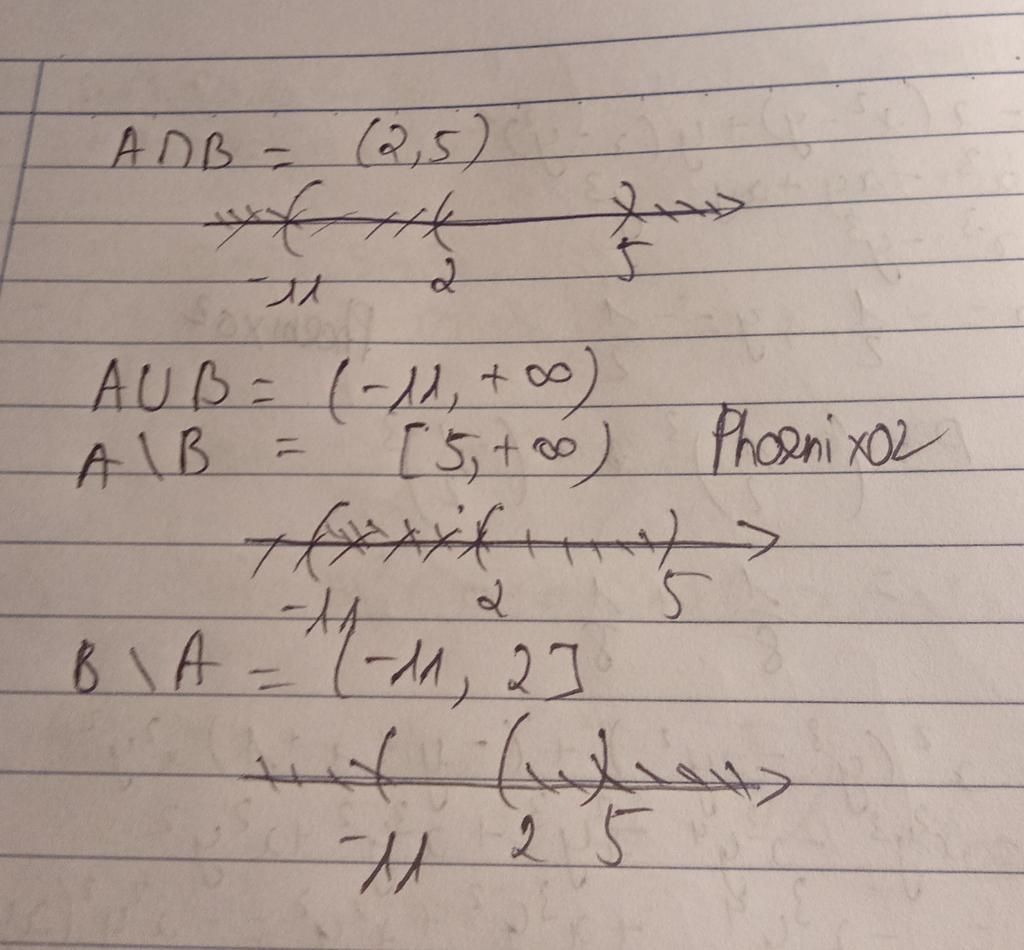 A∩B = (2,5)
-11 2 5
A∪B = (-11, +∞)
A\B = [5,+∞) Phoenix02
-11 2 5
B\A = (-11, 2]
-11 2 5